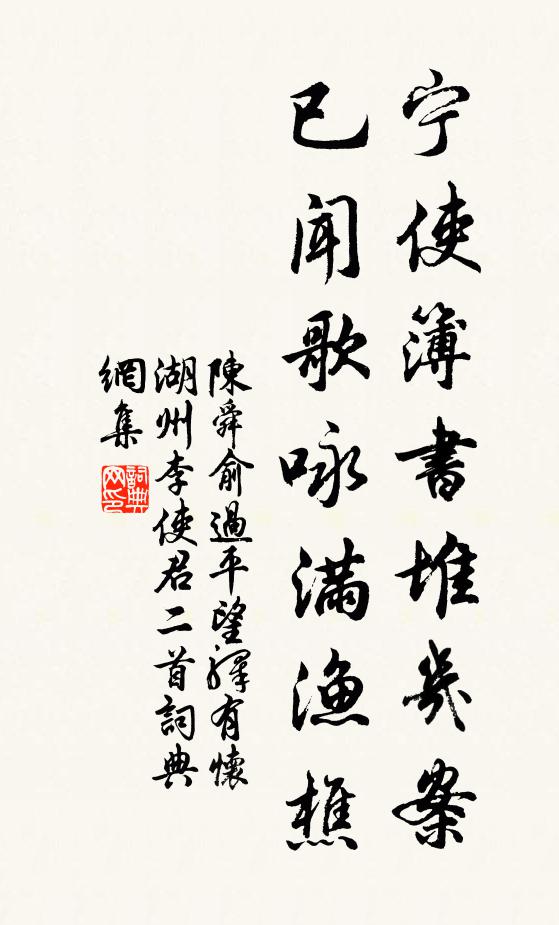 宁使簿書堆几案
已闻歌咏满渔樵
陳舜俞過平望驛有懷
湖州李使君二首詞典
網集
詞典網印